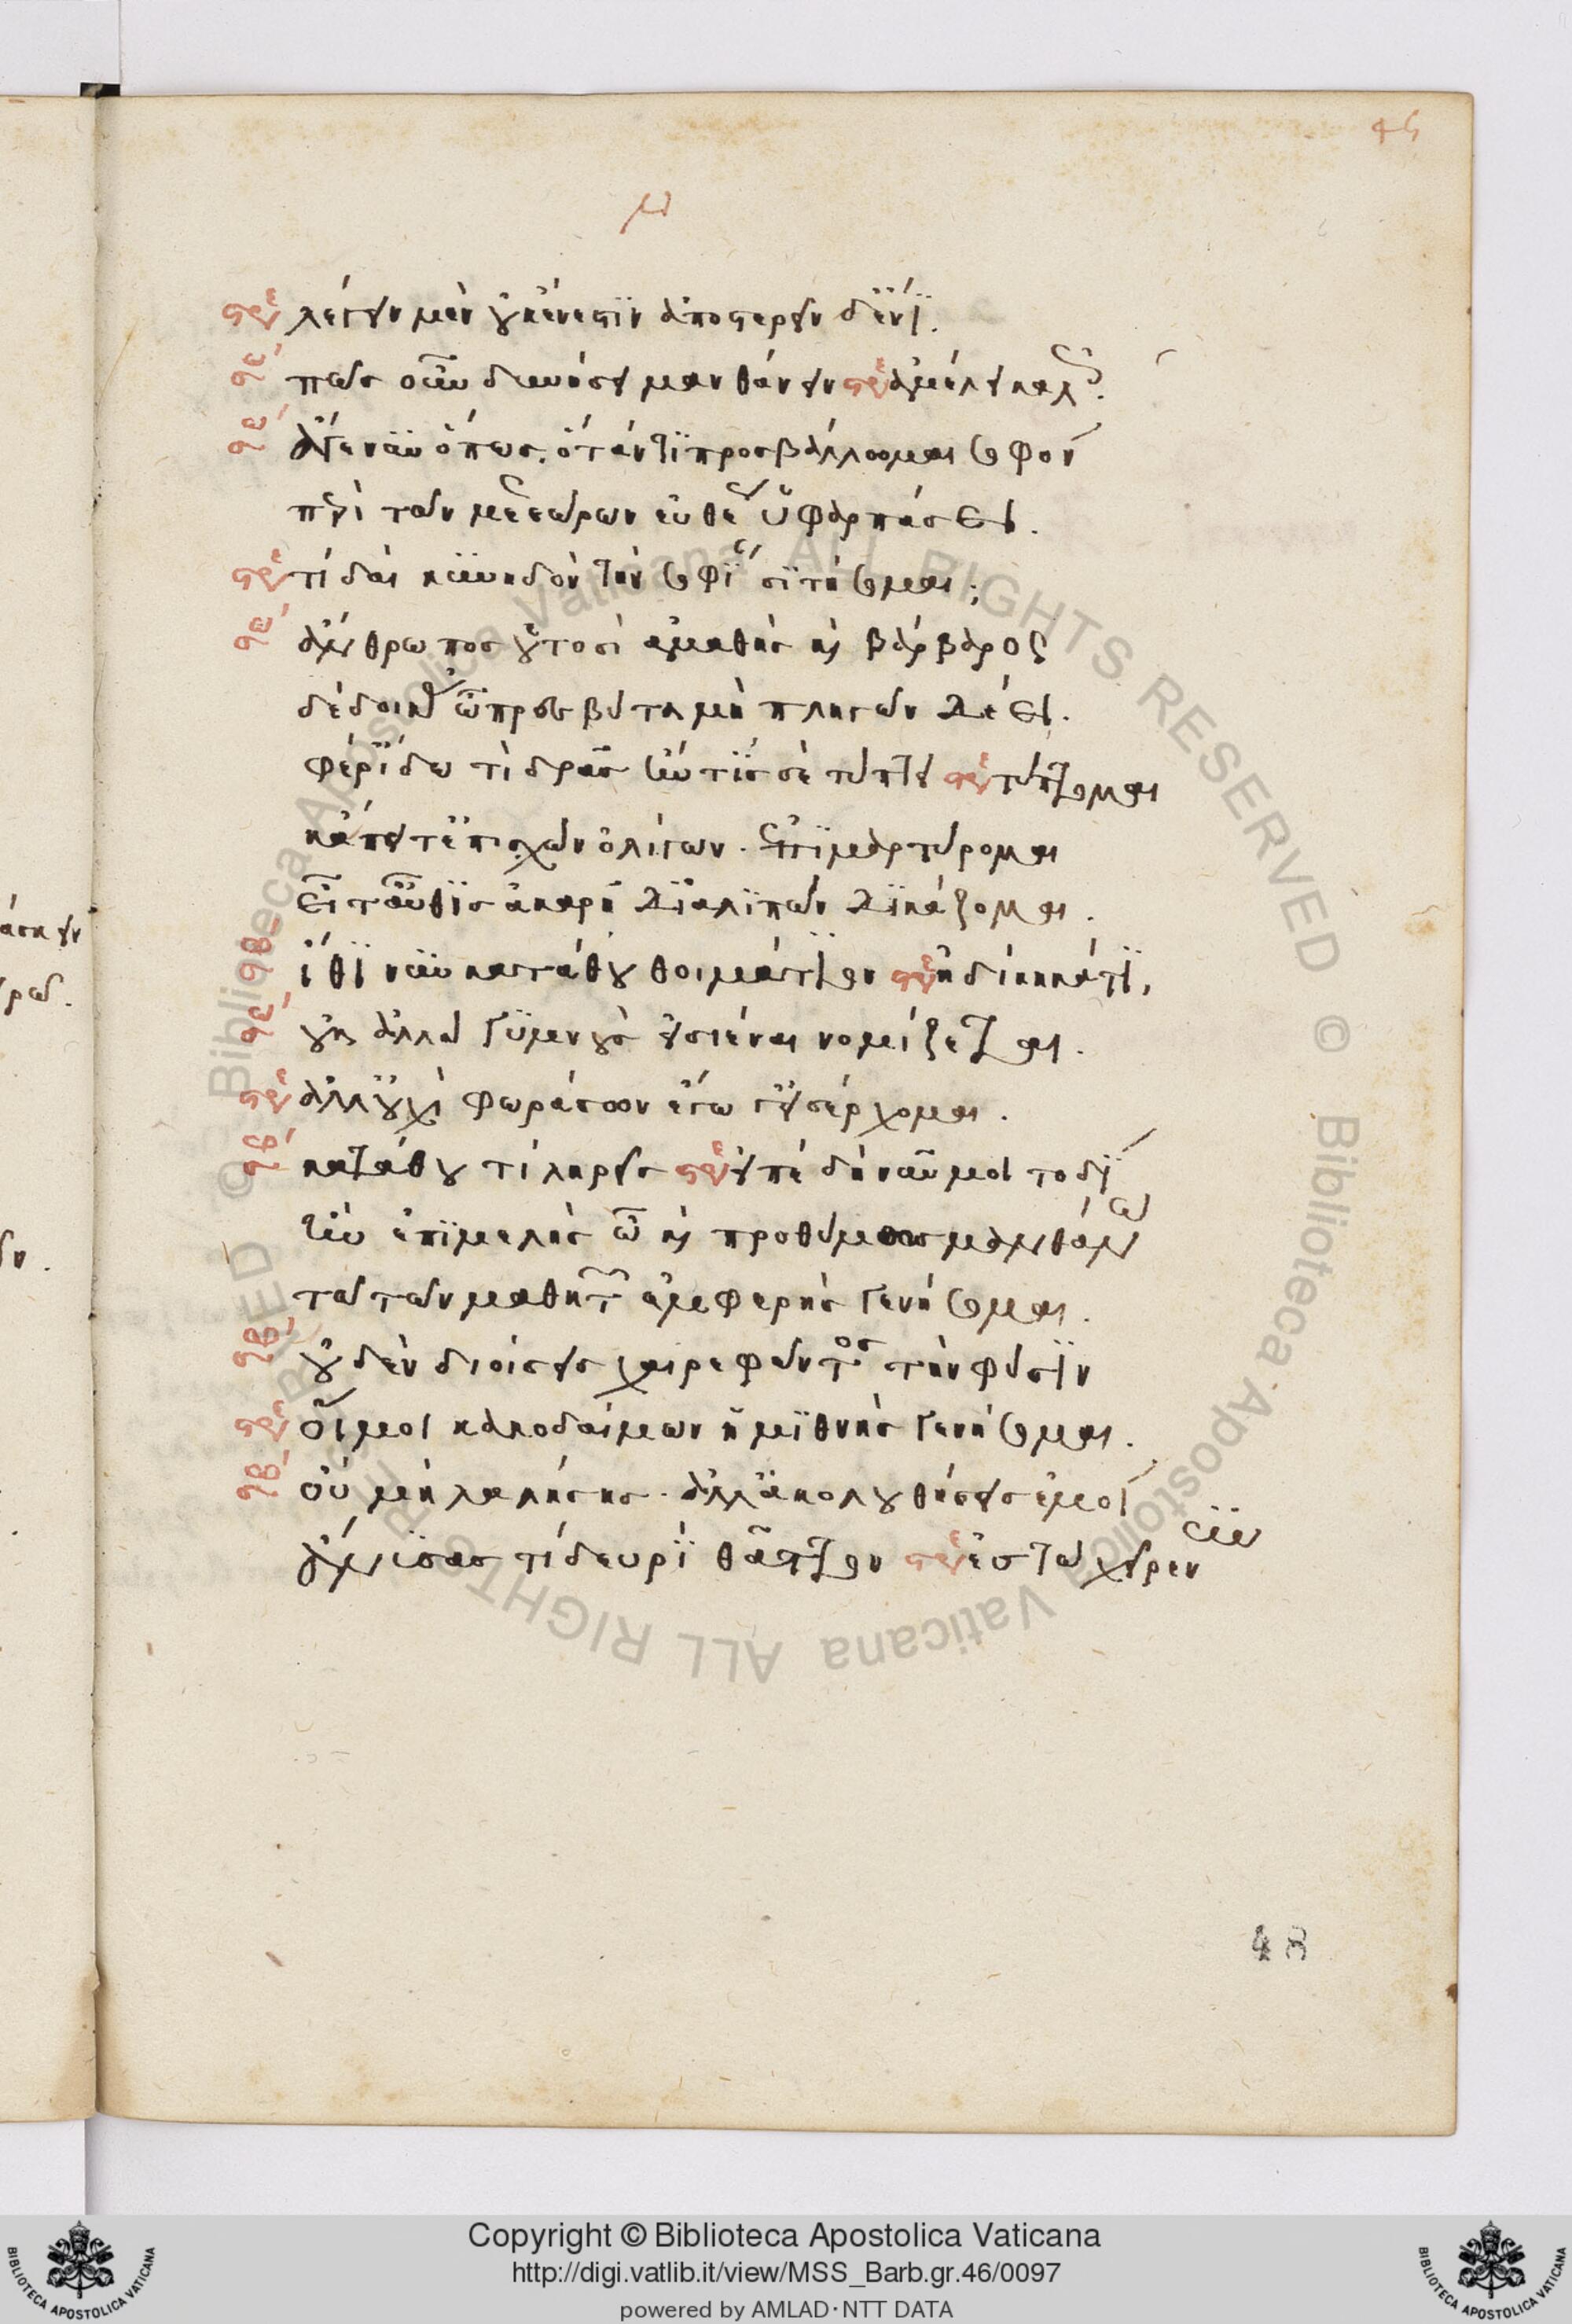 46
μ
στρ λέγειν μὲν οὐκ ἔνεστιν ἀποστερεῖν δ' ἔνι.
σω πῶς οὖν δυνήσει μανθάνειν στρ ἀμέλει καλῶς.
σω ἄγε νῦν ὅπως. ὅτάν τι προσβάλλωμαι σοφὸν
περὶ τῶν μετεώρων εὐθέως ὑφαρπάσει.
στρ τί δαι κυνηδὸν τὴν σοφίαν σιτήσομαι;
σω ἄνθρωπος οὑτοσὶ ἀμαθὴς καὶ βάρβαρος
δέδοικά σ' ὦ πρεσβῦτα μὴ πληγῶν δέει.
φέρ' ἴδω τί δρᾷς ἤν τίς σε τύπτει στρ τύπτομαι
κἄπειτ' ἐπισχὼν ὀλίγον. ἐπιμαρτύρομαι
εἶτ' αὖθις ἀκαρῆ διαλιπὼν δικάζομαι.
σω ἴθι νῦν κατάθου θοιμάτιον στρ ἠδίκηκά τι,
σω οὐκ ἀλλὰ γυμνοὺς εἰσιέναι νομίζεται.
στρ ἀλλ' οὐχὶ φωράσων ἔγωγ' εἰσέρχομαι.
σω κατάθου τί ληρεῖς στρ εἰπὲ δὴ νῦν μοι τοδί
ἢν ἐπιμελὴς ὦ καὶ προθύμως μανθάνω
τῷ τῶν μαθητῶν ἐμφερὴς γενήσομαι.
σω οὐδὲν διοίσεις χαιρεφῶντος τὴν φύσιν
στρ οἴμοι κακοδαίμων ἡμιθνὴς γενήσομαι.
σω οὐ μὴ λαλήσῃς. ἀλλ' ἀκολουθήσεις ἐμοί
ἀνύσας τί δευρὶ θᾶττον στρ ἐς τὼ χεῖρέ νυν
48
Copyright © Biblioteca Apostolica Vaticana
http://digi.vatlib.it/view/MSS_Barb.gr.46/0097
powered by AMLAD·NTT DATA